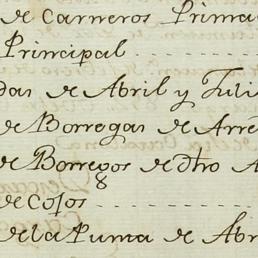 de Carneros Prima
Principal
das de Abril y Juli
de Borregas de Arre
de Borregos de dho A
8
de Cojos
de la Puma de Abr